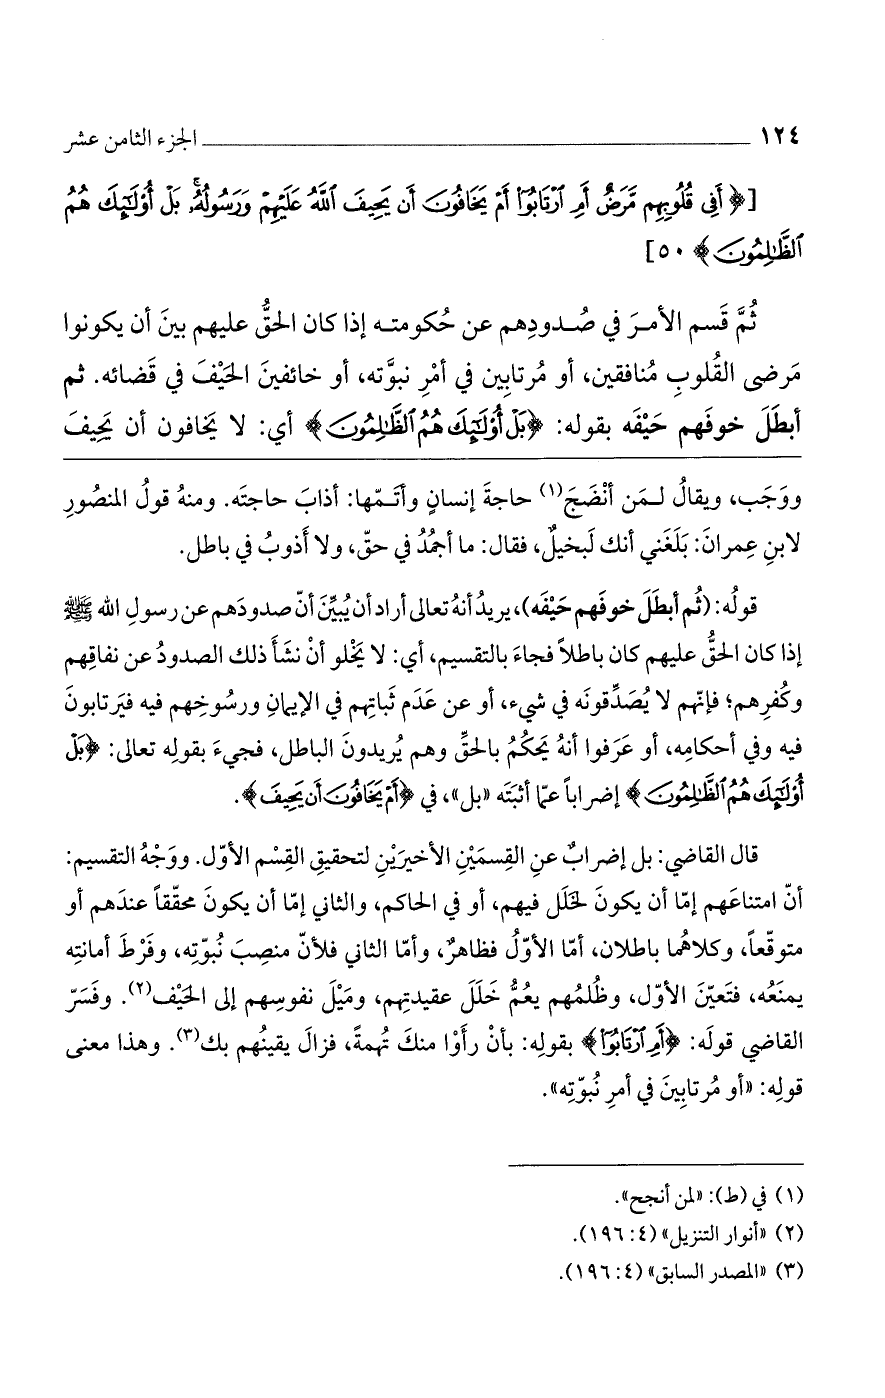 ١٢٤ ــــــ الجزء الثامن عشر
[﴿أَفِى قُلُوبِهِم مَّرَضٌ أَمِ ٱرْتَابُوٓا۟ أَمْ يَخَافُونَ أَن يَحِيفَ ٱللَّهُ عَلَيْهِمْ وَرَسُولُهُۥ ۚ بَلْ أُو۟لَـٰٓئِكَ هُمُ
ٱلظَّـٰلِمُونَ﴾ ٥٠]
ثُمَّ قَسم الأمـرَ في صُـدودِهم عن حُكومتـه إذا كان الحقُّ عليهم بينَ أن يكونوا
مَرضى القُلوبِ مُنافقين، أو مُرتابِين في أمْرِ نبوَّته، أو خائفينَ الحَيْفَ في قَضائه. ثم
أبطَلَ خوفَهم حَيْفَه بقوله: ﴿بَلْ أُو۟لَـٰٓئِكَ هُمُ ٱلظَّـٰلِمُونَ﴾ أي: لا يَخافون أن يَحِيفَ
ووَجَب، ويقالُ لـمَن أنْضَجَ(١) حاجةَ إنسانٍ وأتَـمّها: أذابَ حاجتَه. ومنهُ قولُ المنصُورِ
لابنِ عِمرانَ: بَلَغَني أنك لَبخيلٌ، فقال: ما أجمُدُ في حقّ، ولا أَذوبُ في باطل.
قولُه: (ثُم أبطَلَ خوفَهم حَيْفَه)، يريدُ أنهُ تعالى أراد أن يُبيِّنَ أنّ صدودَهم عن رسولِ الله ﷺ
إذا كان الحقُّ عليهم كان باطلاً فجاءَ بالتقسيم، أي: لا يَخْلو أنْ نشَأَ ذلك الصدودُ عن نفاقِهم
وكُفرِهم؛ فإنّهم لا يُصَدِّقونَه في شيء، أو عن عَدَم ثَباتِهم في الإيمانِ ورسُوخِهم فيه فيَرتابونَ
فيه وفي أحكامِه، أو عَرَفوا أنهُ يَحكُمُ بالحقِّ وهم يُريدونَ الباطل، فجيءَ بقولِه تعالى: ﴿بَلْ
أُو۟لَـٰٓئِكَ هُمُ ٱلظَّـٰلِمُونَ﴾ إضراباً عمّا أثبتَه «بل»، في ﴿أَمْ يَخَافُونَ أَن يَحِيفَ﴾.
قال القاضي: بل إضرابٌ عنِ القِسمَيْنِ الأخيرَيْنِ لتحقيقِ القِسْم الأوّل. ووَجْهُ التقسيم:
أنّ امتناعَهم إمّا أن يكونَ لخَلَل فيهم، أو في الحاكم، والثاني إمّا أن يكونَ محقّقاً عندَهم أو
متوقّعاً، وكلاهُما باطلان، أمّا الأوّلُ فظاهرٌ، وأمّا الثاني فلأنّ منصِبَ نُبوّتِه، وفَرْطَ أمانتِه
يمنَعُه، فتَعيّنَ الأوّل، وظُلمُهم يعُمُّ خَلَلَ عقيدتِهم، ومَيْلَ نفوسِهم إلى الحَيْف(٢). وفَسَرّ
القاضي قولَه: ﴿أَمِ ٱرْتَابُوٓا۟﴾ بقولِه: بأنْ رأَوْا منكَ تُهمةً، فزالَ يقينُهم بك(٣). وهذا معنى
قولِه: «أو مُرتابِينَ في أمرِ نُبوّتِه».
(١) في (ط): «لمن أنجح».
(٢) «أنوار التنزيل» (٤: ١٩٦).
(٣) «المصدر السابق» (٤: ١٩٦).